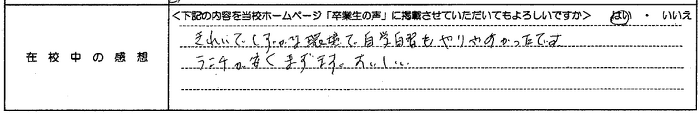 ＜下記の内容を当校ホームページ「卒業生の声」に掲載させていただいてもよろしいですか＞ はい ・ いいえ
在校中の感想
きれいでしずかな環境で自学自習もやりやすかったです
ランチが安くまずまずおいしい